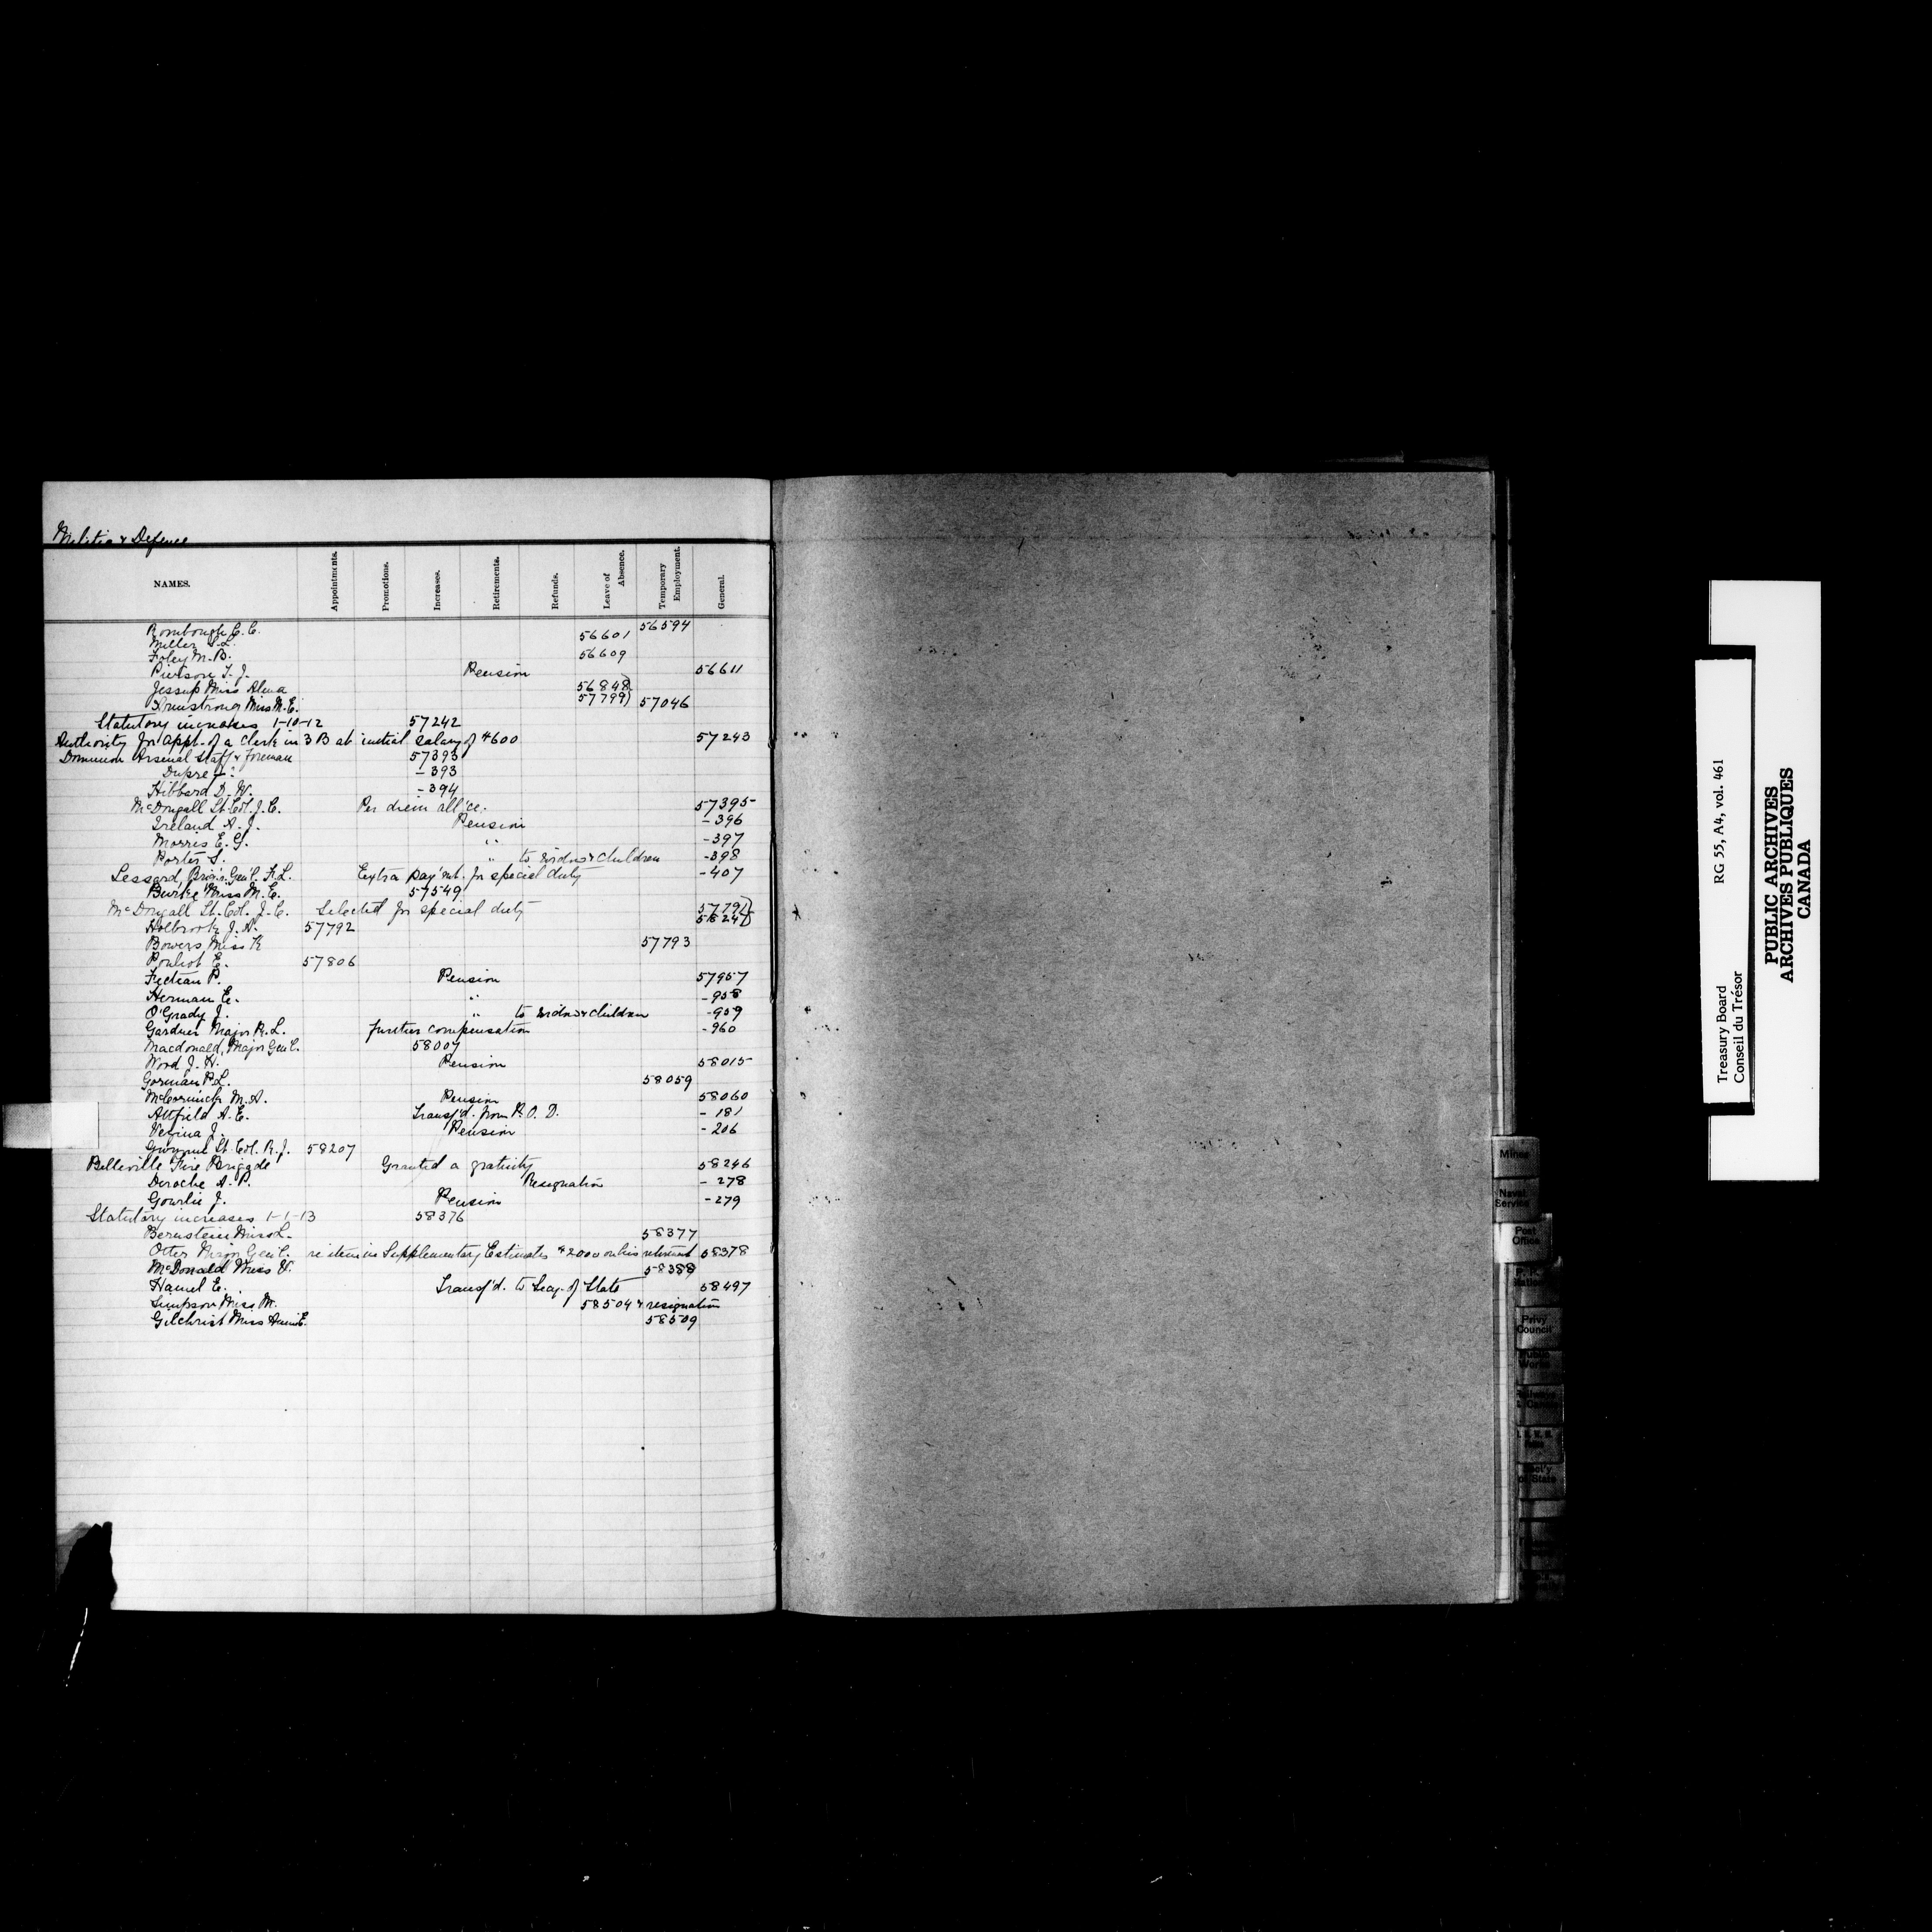 Militia & Defence
NAMES. Appointments. Promotions. Increases. Retirements. Refunds. Leave of Absence. Temporary Employment. General.
Rombough C. C. 56594
Miller S. L. 56601
Foley M. B. 56609
Pierson T. J. Pension 56611
Jessup Miss Alma 56848)
57799)
Armstrong Miss M. E. 57046
Statutory increases 1-10-12 57242
Authority for appt. of a Clerk in 3 B at initial salary of $600 57243
Dominion Arsenal Staff & foreman 57393
Dupre - 393
Hibbard D. W. - 394
McDougall Lt. Col. J. C. Per diem all'ce. 57395
Ireland A. J. Pension - 396
Morris E. G. " - 397
Porter S. " to widow & children - 398
Lessard, Brig. Gen'l. F. L. Extra pay'mt. for special duty - 407
Burke Miss M. E. 57549
McDougall Lt. Col. J. C. Selected for special duty 57791)
58247)
Holbrook J. H. 57792
Bowers Miss K 57793
Pouliot E. 57806
Fecteau P. Pension 57957
Herman E. " - 958
O'Grady J. " to widow & children - 959
Gardner Major R. L. further compensation - 960
Macdonald, Major Gen'l. 58007
Wood J. H. Pension 58015
Gorman P. L. 58059
McCormick M. A. Pension 58060
Attfield A. E. Transf'd. from P. O. D. - 181
Vezina J. Pension - 206
Gwynne Lt. Col. R. J. 58207
Belleville Fire Brigade Granted a gratuity 58246
Deroche A. P. Resignation - 278
Gowrlie J. Pension - 279
Statutory increases 1-1-13 58376
Bernstein Miss L. 58377
Otter Major Gen'l. re item in Supplementary Estimates $2000 on his retirement 58378
McDonald Miss V. 58388
Hamel E. Transf'd. to Secy. of State 58497
Simpson Miss M. 58504 & resignation
Gilchrist Miss 58509
Mines
Naval Service
Post Office
Privy Council
Public Works
Sec'y of State
Treasury Board RG 55, A4, vol. 461
Conseil du Trésor
PUBLIC ARCHIVES
ARCHIVES PUBLIQUES
CANADA